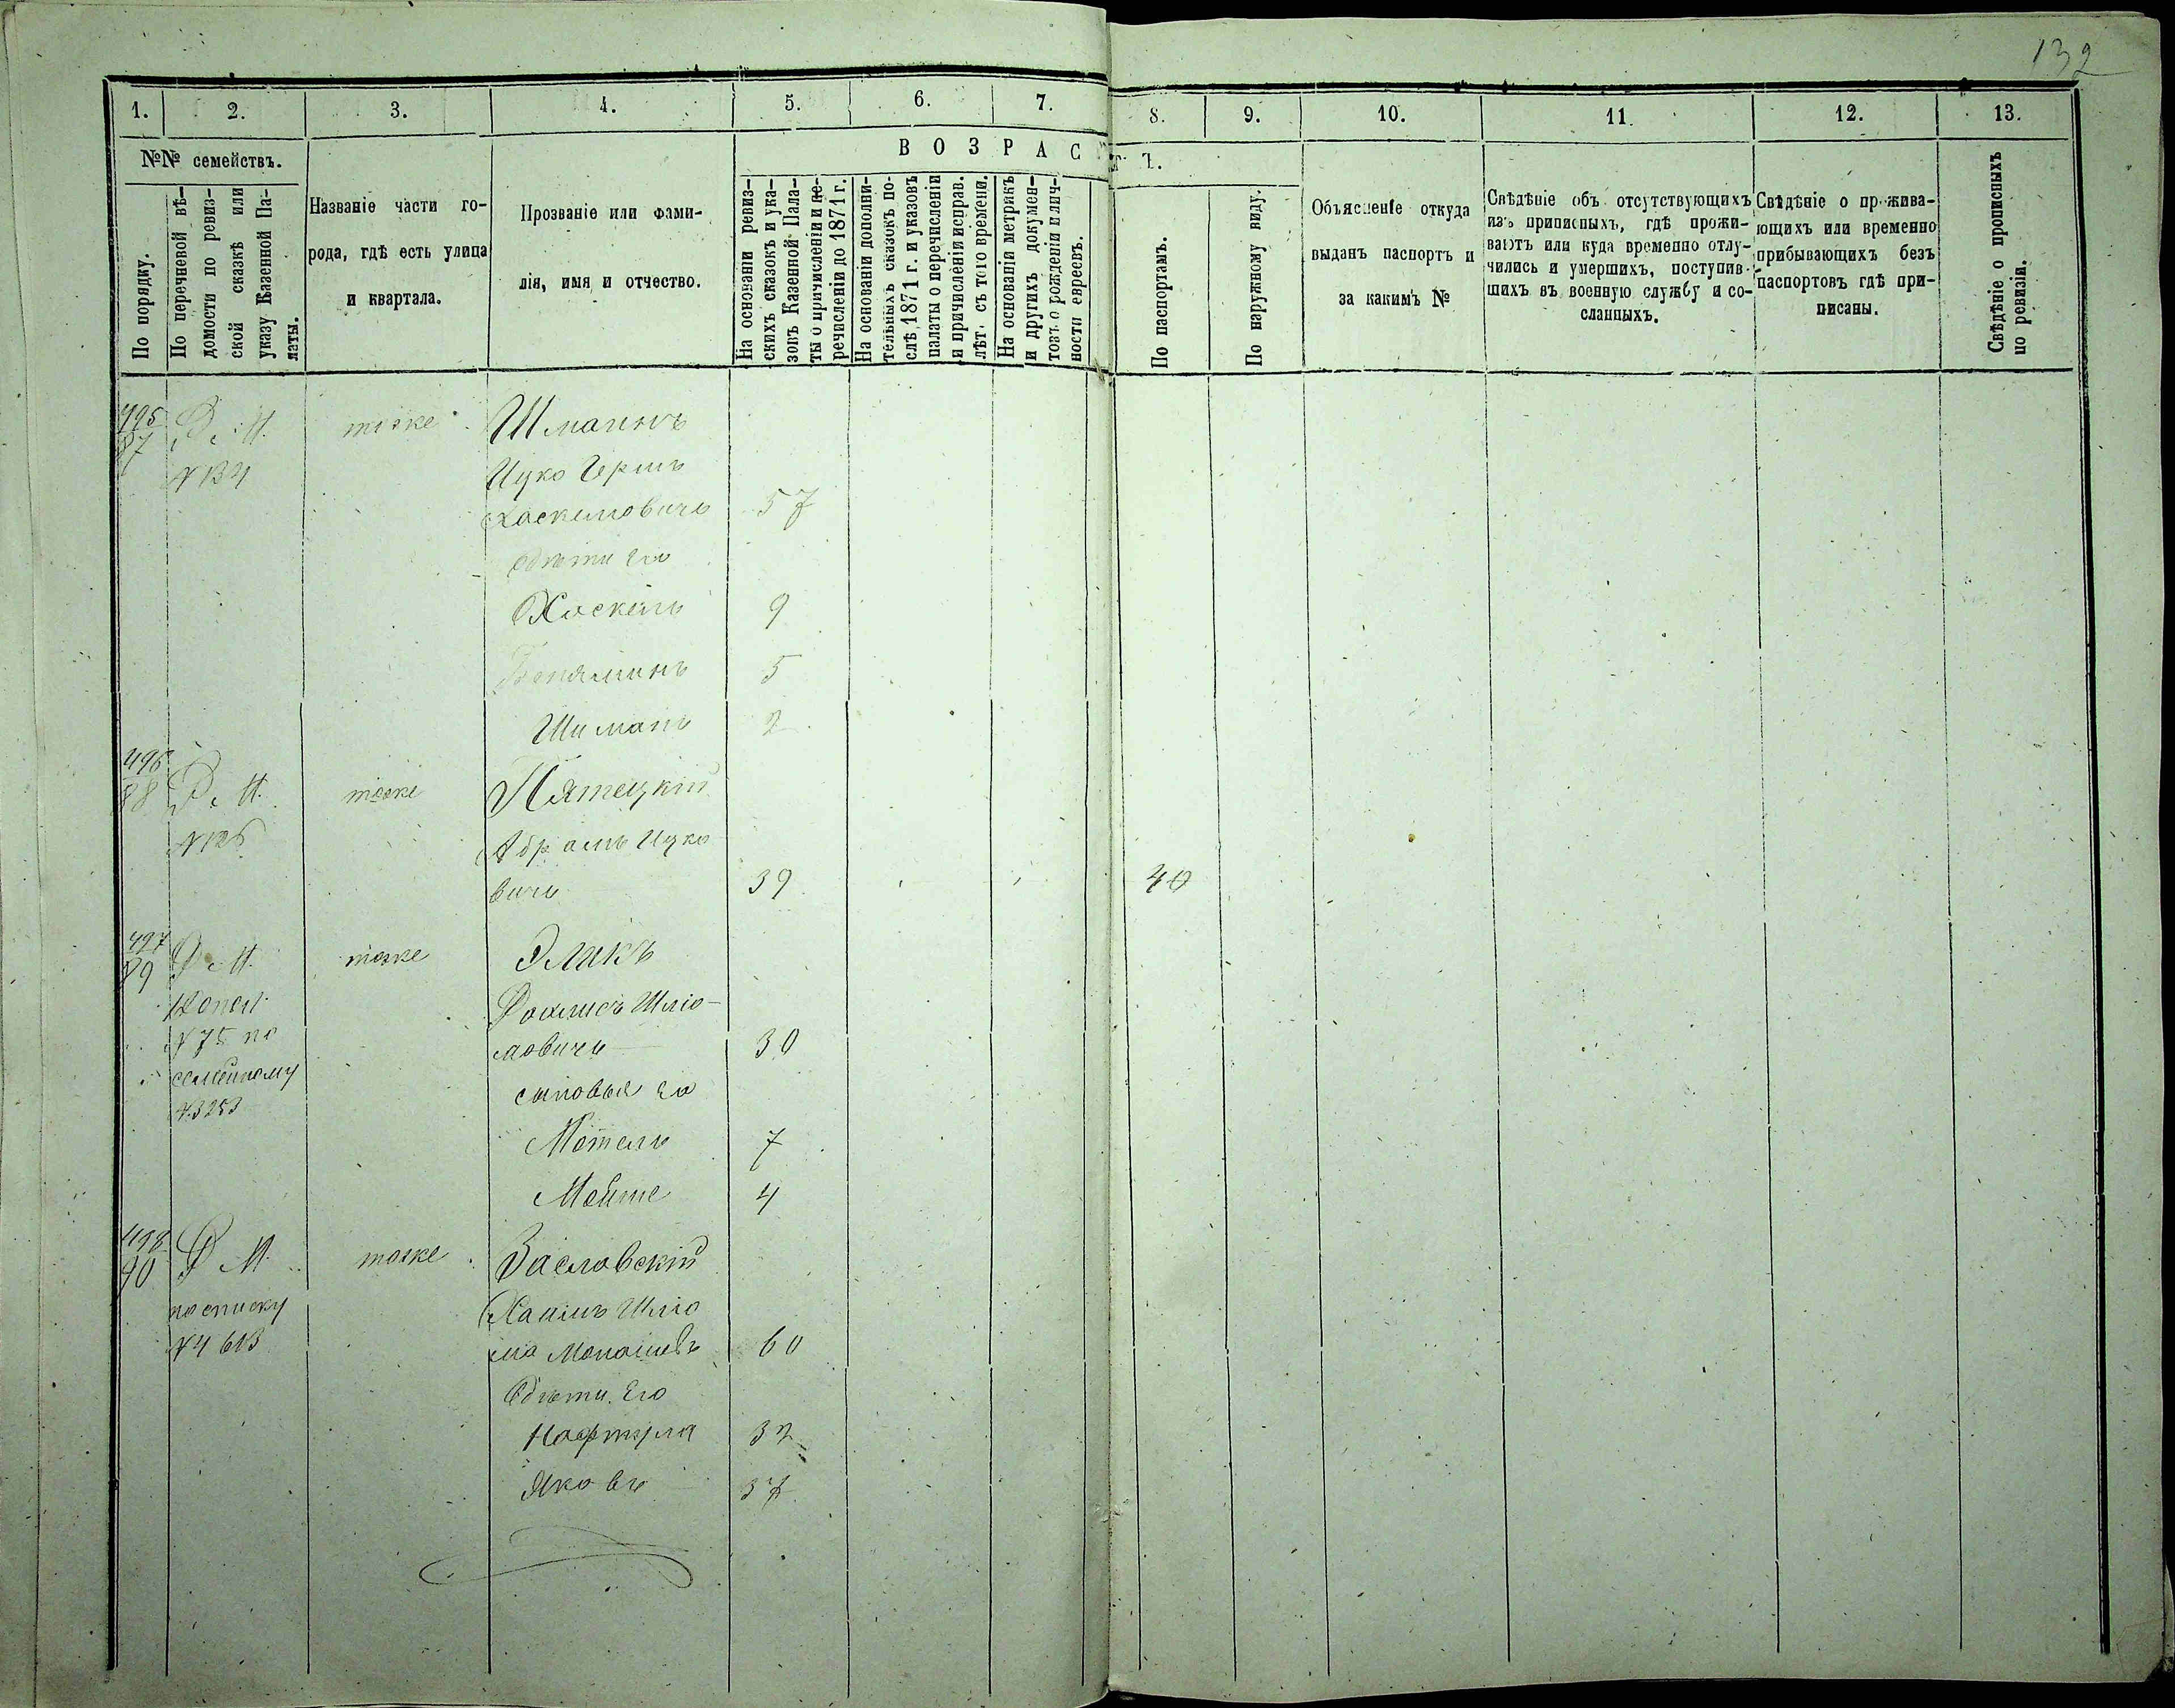 132
1.
2.
3.
4.
5.
6.
7.
8.
9.
10.
11.
12.
13.
№№ семействъ.
По порядку.
По перечневой вѣ-
домости по ревиз-
ской сказкѣ или
указу Казенной Па-
латы.
Названіе части го-
рода, гдѣ есть улица
и квартала.
Прозваніе или фами-
лія, имя и отчество.
ВОЗРАСТЪ.
На основаніи ревиз-
скихъ сказокъ и ука-
зовъ Казенной Пала-
ты о причисленіи и пе-
речисленіи до 1871 г.
На основаніи дополни-
тельныхъ сказокъ по-
слѣ 1871 г. и указовъ
палаты о перечисленіи
и причисленіи исправ.
лѣт. съ того времени.
На основаніи метрикъ
и другихъ докумен-
товъ о рожденіи и лич-
ности евреевъ.
По паспортамъ.
По наружному виду.
Объясненіе откуда
выданъ паспортъ и
за какимъ №
Свѣдѣніе объ отсутствующихъ
изъ приписныхъ, гдѣ прожи-
ваютъ или куда временно отлу-
чились и умершихъ, поступив-
шихъ въ военную службу и со-
сланныхъ.
Свѣдѣніе о прожива-
ющихъ или временно
прибывающихъ безъ
паспортовъ гдѣ при-
писаны.
Свѣдѣніе о прописныхъ
по ревизіи.
495
87
тоже
Шмаинъ
Ицко Гершъ
Хаскелевичъ 57
дѣти его
Хаскель 9
Беняминъ 5
Шиманъ 2
496
88
тоже
Пятецкій
Абрамъ Ицко
вичъ 39 40
497
89
тоже
Эликъ
допол.
№ 75 по
семейному
№ 3253
Шліо-
мовичъ 30
сыновья его
Мотель 7
Мойше 4
498
90
тоже
Заславскій
по списку
№ 4613
Хаимъ Шліо
ма Монашевъ 60
дѣти его
Нафтула 32
Яковъ 37